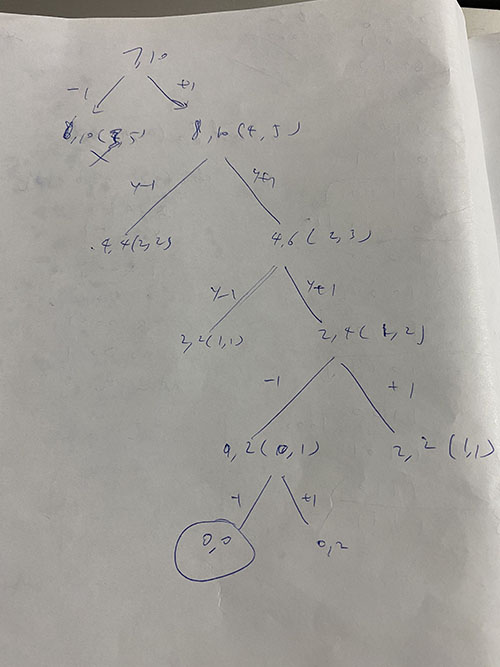 7,10
-1 +1
8,10(4,5)
y-1 y+1
4,4(2,2) 4,6(2,3)
y-1 y+1
2,2(1,1) 2,4(1,2)
-1 +1
0,2(0,1) 2,2(1,1)
-1 +1
0,0 0,2